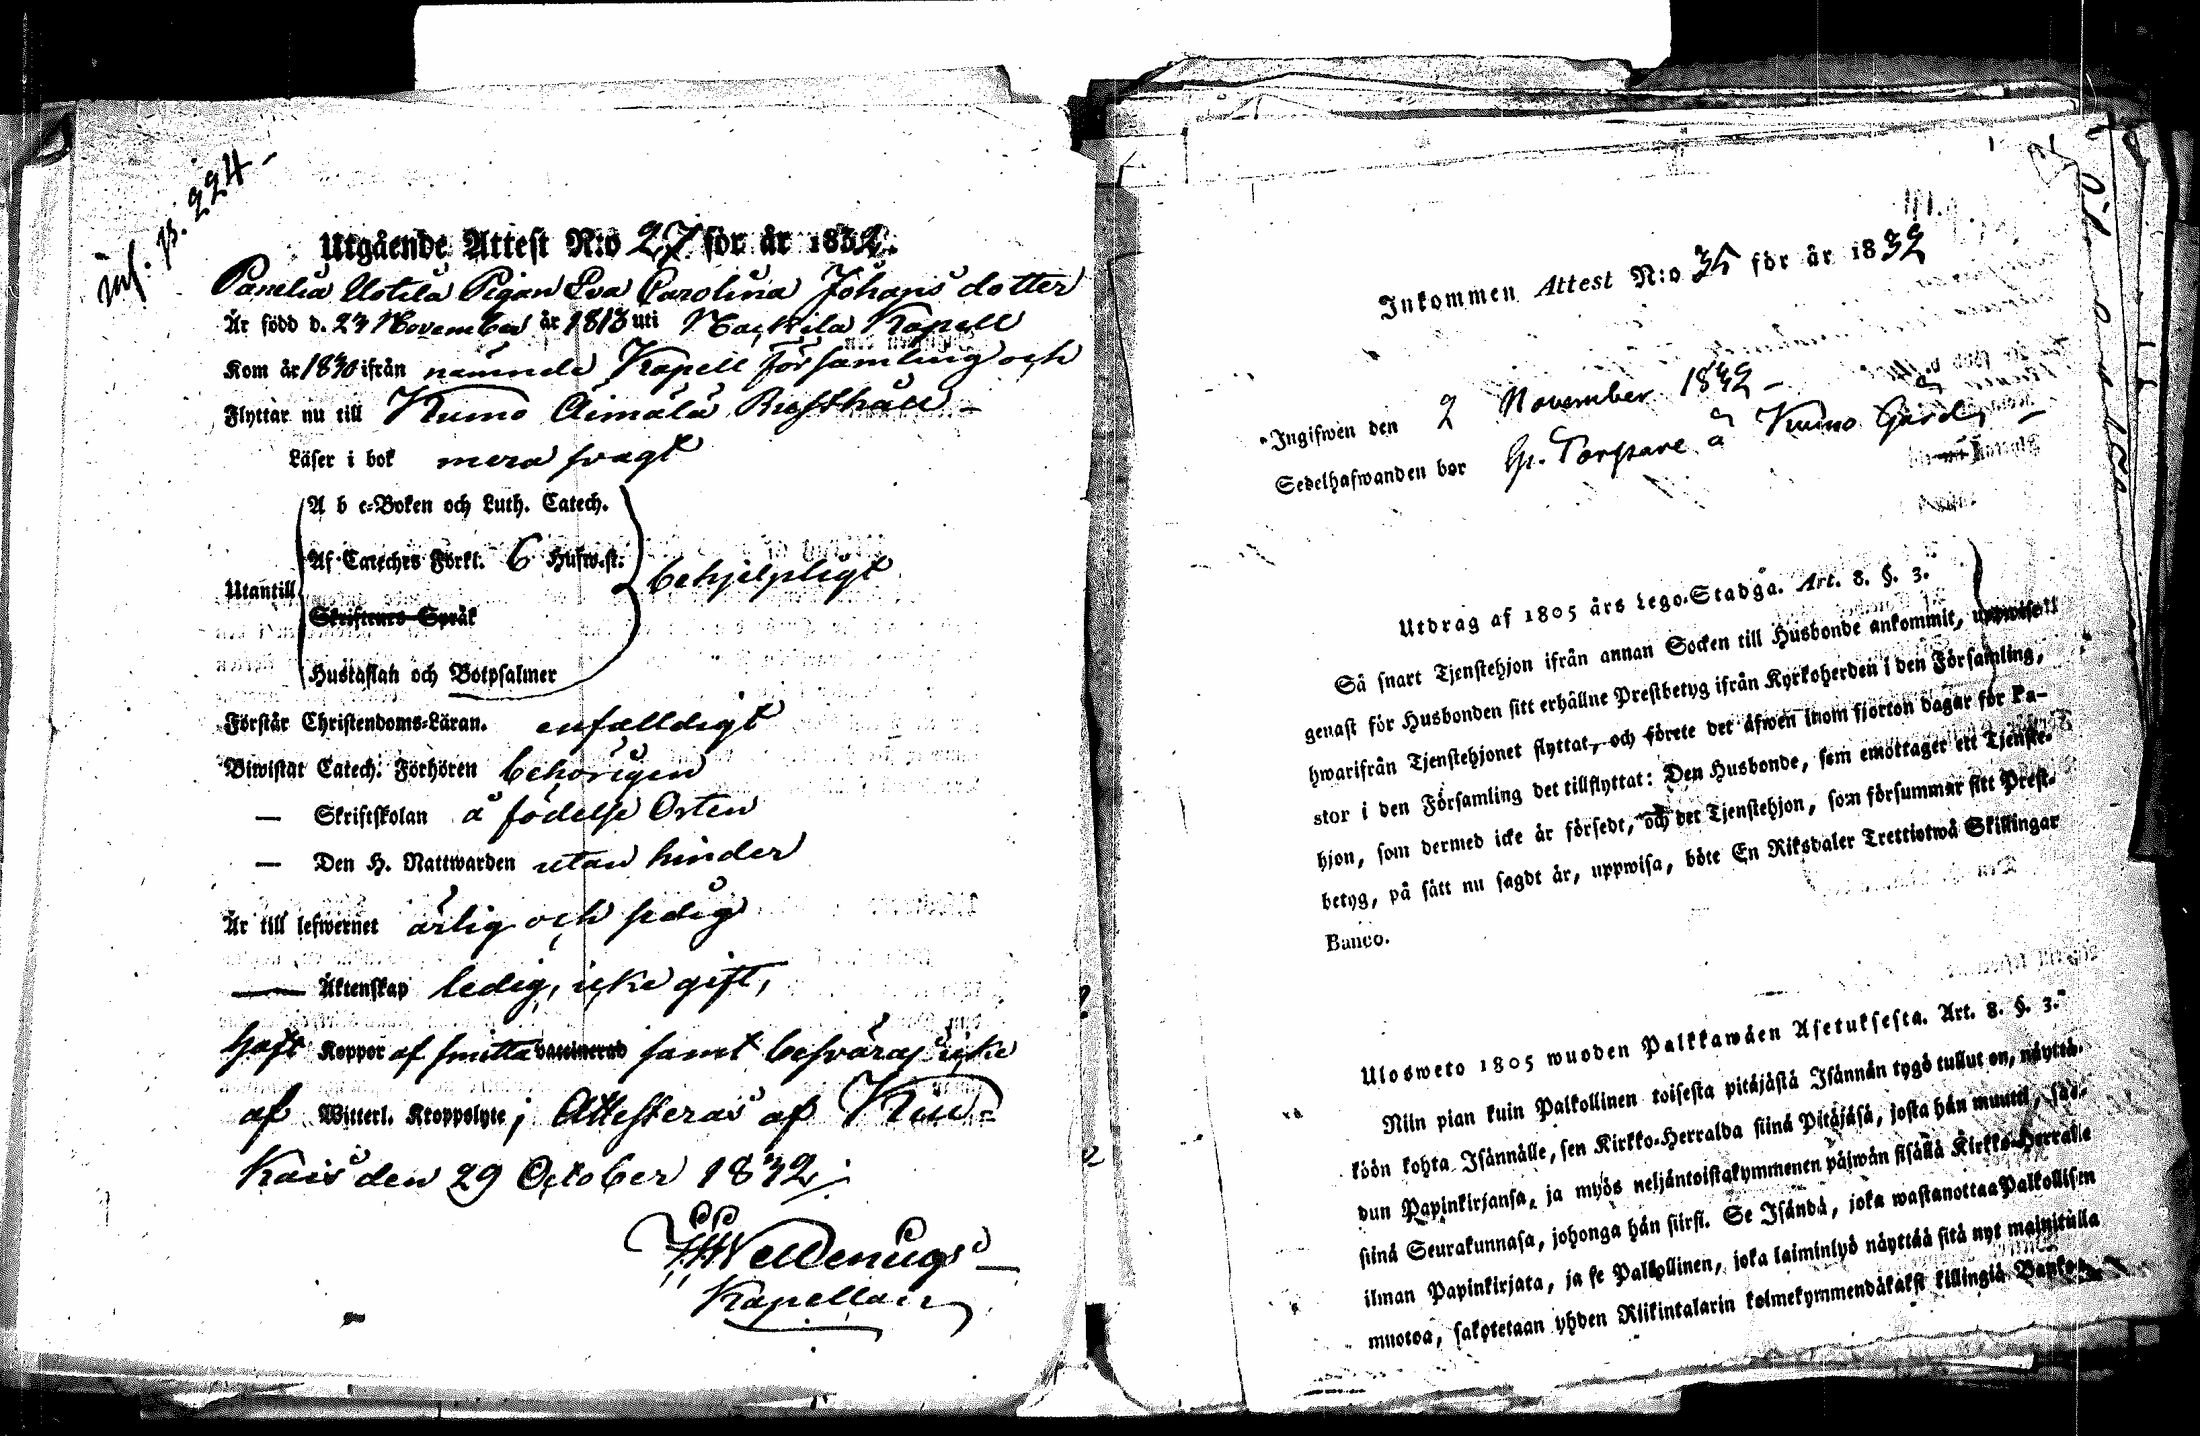 inf. p. 224 -
Utgående Attest N:o 27 för år 1832.
Panelia Uotila Pigan Eva Carolina Johans dotter
Är född d. 24 November år 1813 uti Nackila Kapell
Kom år 1830 ifrån nämnde Kapell församling och
Flyttar nu till Kumo Aimälä Rusthåll -
Läser i bok mera svagt
A b c-Boken och Luth. Catech.
Af Cateches Förkl. 6 Hufw.st.
Utantill behjelpligt
Skriftenes Språk
Hustaflan och Botpsalmer
Förstår Christendoms-Läran. enfalldigt
Biwistat Catech. Förhören behörigen
— Skriftskolan å födelse Orten
— Den H. Nattwarden utan hinder
Är till lefwernet ärlig och sedig
— Äktenskap ledig, icke gift,
haft Koppor af smitta vaccinerad samt besväras icke
af Witterl. Kroppslyte; Attesteras af Kiu=
kais den 29 October 1832
Kapellan
Inkommen Attest N:o 35 för år 1832
Ingifwen den 2 November 1832 -
Sedelhafwanden bor Torpare å Kumo Gård
Utdrag af 1805 års Lego-Stadga. Art. 8. §. 3.
Så snart Tjenstehjon ifrån annan Socken till Husbonde ankommit, uppwise
genast för Husbonden sitt erhållne Prestbetyg ifrån Kyrkoherden i den Församling,
hwarifrån Tjenstehjonet flyttat, och förete det äfwen inom fjorton dagar för Pa-
stor i den Församling det tillflyttat: Den Husbonde, som emottager ett Tjenste-
hjon, som dermed icke är försedt, och det Tjenstehjon, som försummar sitt Prest-
betyg, på sätt nu sagdt är, uppwisa, böte En Riksdaler Trettiotwå Skillingar
Banco.
Ulosweto 1805 wuoden Palkkawäen Asetuksesta. Art. 8. §. 3.
Niin pian kuin Palkollinen toisesta pitäjästä Isännän tygö tullut on, näyttä-
köön kohta Isännälle, sen Kirkko-Herralda siinä Pitäjäsä, josta hän muutti, saa-
dun Papinkirjansa, ja myös neljäntoistakymmenen päiwän sisällä Kirkko-Herralle
siinä Seurakunnasa, johonga hän siirsi. Se Isändä, joka wastanottaa Palkollisen
ilman Papinkirjata, ja se Palkollinen, joka laiminlyö näyttää sitä nyt mainitulla
muotoa, sakotetaan yhden Riikintalarin kolmekymmendäkaksi killingiä Bankos